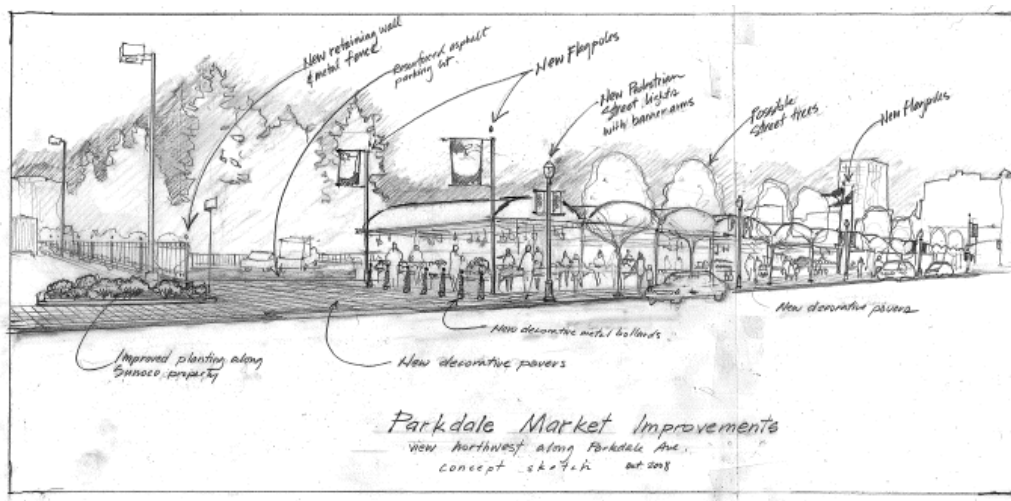 New retaining wall
& metal fence
Resurfaced asphalt
parking lot
New Flagpoles
New Pedestrian
Street lights
with banner arms
Possible
Street trees
New Flagpoles
Improved planting along
Sunoco property
New decorative pavers
New decorative metal bollards
New decorative pavers
Parkdale Market Improvements
view northwest along Parkdale Ave.
concept sketch oct 2008